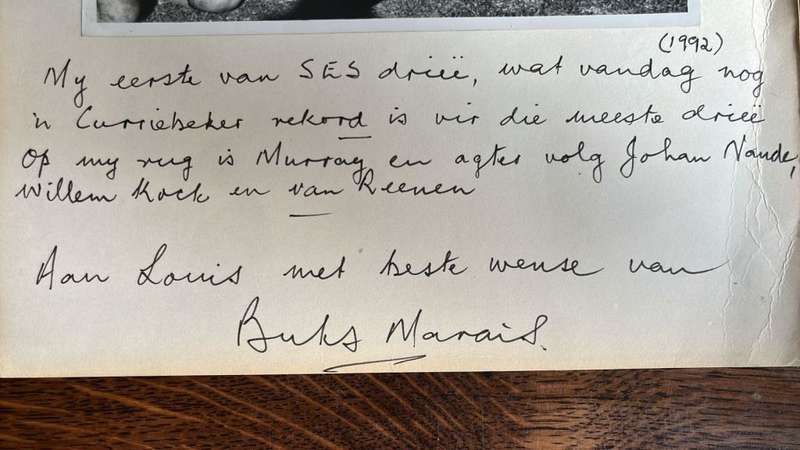 (1992)
My eerste van SES drieë, wat vandag nog
'n Curriebeker rekord is vir die meeste drieë
Op my rug is Murray en agter volg Johan Naude,
Willem Kock en van Reenen
Aan Louis met beste wense van
Buks Marais.